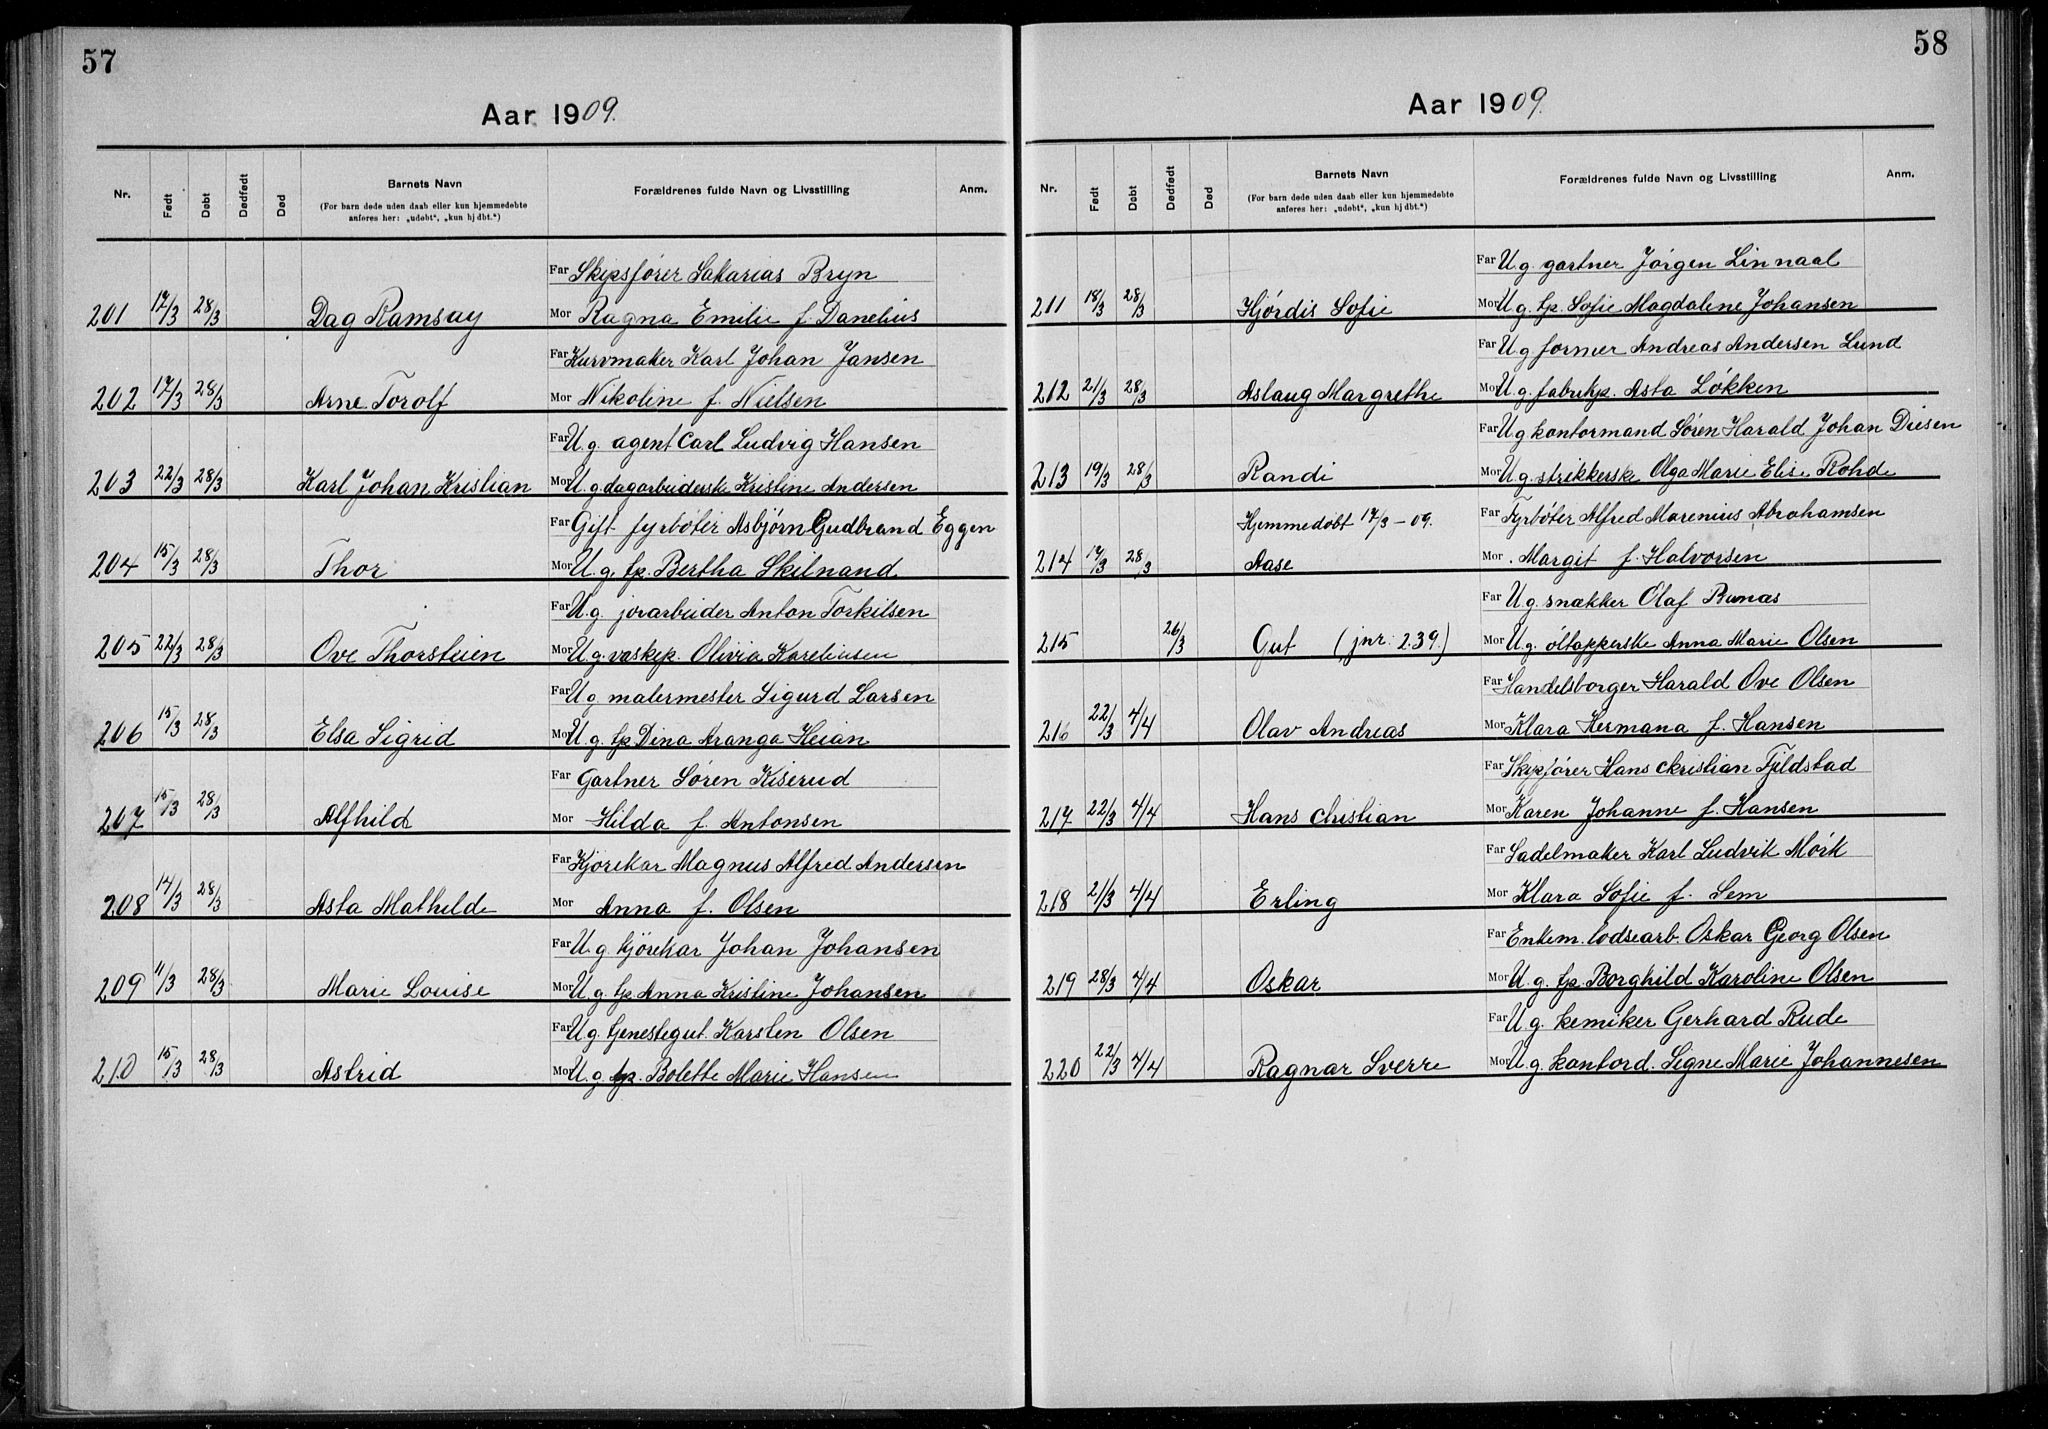 57
Aar 1909.
Nr. Født Døbt Dødfødt Død Barnets Navn Forældrenes fulde Navn og Livsstilling Anm.
(For barn døde uden daab eller kun hjemmedøbte
anføres her: „udøbt“, „kun hj dbt.“)
Far Skipsfører Sakarias Bryn
201 17/3 28/3 Dag Ramsay Mor Ragna Emilie f. Danelius
Far Kurvmaker Karl Johan Jansen
202 17/3 28/3 Arne Torolf Mor Nikoline f. Nielsen
Far U. g. agent Carl Ludvig Hansen
203 22/3 28/3 Karl Johan Kristian Mor U. g. dagarbeiderske Kristine Andersen
Far Gift fyrbøter Asbjørn Gudbrand Eggen
204 15/3 28/3 Thor Mor U. g. tp. Bertha Skilnand
Far U. g. jorarbeider Anton Torkilsen
205 22/3 28/3 Ove Thorsteien Mor U. g. vaskep. Olivia Kareliusen
Far U g malermester Sigurd Larsen
206 15/3 28/3 Elsa Sigrid Mor U. g. tp Dina Aranga Heian
Far Gartner Søren Kiserud
207 15/3 28/3 Alfhild Mor Hilda f. Antonsen
Far Kjørekar Magnus Alfred Andersen
208 14/3 28/3 Asta Mathilde Mor Anna f. Olsen
Far U. g. kjørekar Johan Johansen
209 11/3 28/3 Marie Louise Mor U. g. tp Anna Kristine Johansen
Far U g. tjenestegut Karsten Olsen
210 15/3 28/3 Astrid Mor U. g. tp. Bolette Marie Hansen
58
Aar 1909.
Nr. Født Døbt Dødfødt Død Barnets Navn Forældrenes fulde Navn og Livsstilling Anm.
(For barn døde uden daab eller kun hjemmedøbte
anføres her: „udøbt“, „kun hj dbt.“)
Far U. g. gartner Jørgen Linnaal
211 18/3 28/3 Hjørdis Sofie Mor U. g. tp. Sofie Magdalene Johansen
Far U g former Andreas Andersen Lund
212 21/3 28/3 Aslaug Margrethe Mor U. g. fabrikp. Asta Løkken
Far U g kontormand Søren Harald Johan Diesen
213 19/3 28/3 Randi Mor U g. strikkerske Olga Marie Elise Rohde
Hjemmedøbt 17/3 - 09. Far Fyrbøter Alfred Marenius Abrahamsen
214 17/3 28/3 Aase Mor . Margit f. Halvorsen
Far U g. snækker Olaf Runas
215 26/3 Gut (jnr: 239.) Mor U. g. øltapperske Anna Marie Olsen
Far Handelsborger Harald Ove Olsen
216 22/3 4/4 Olav Andreas Mor Klara Hermana f. Hansen
Far Skipsfører Hans Christian Fjeldstad
217. 22/3 4/4 Hans Christian Mor Karen Johanne f. Hansen
Far Sadelmaker Karl Ludvik Mørk
218 21/3 4/4 Erling Mor Klara Sofie f. Sem
Far Enkem. lodsearb. Oskar Georg Olsen
219 28/3 4/4 Oskar Mor U. g. tp. Borghild Karoline Olsen
Far U g. kemiker Gerhard Rude
220 22/3 4/4 Ragnar Sverre Mor U. g. kontord. Signe Marie Johannesen